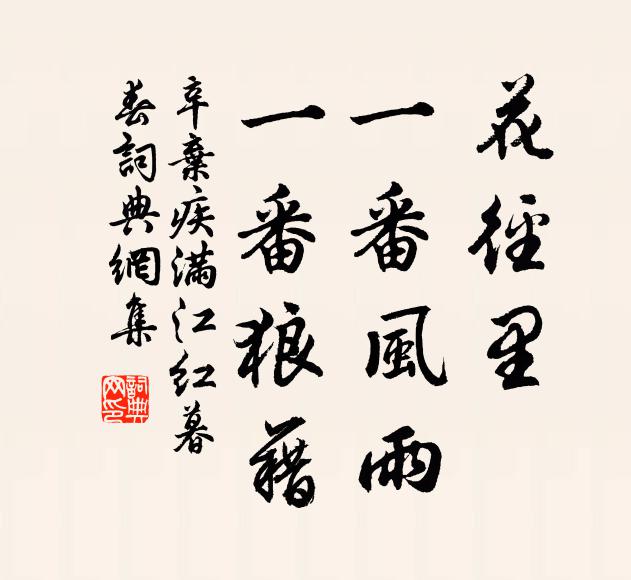 花徑里
一番風雨
一番狼藉
辛棄疾滿江紅暮
春詞典網集
詞典
网印